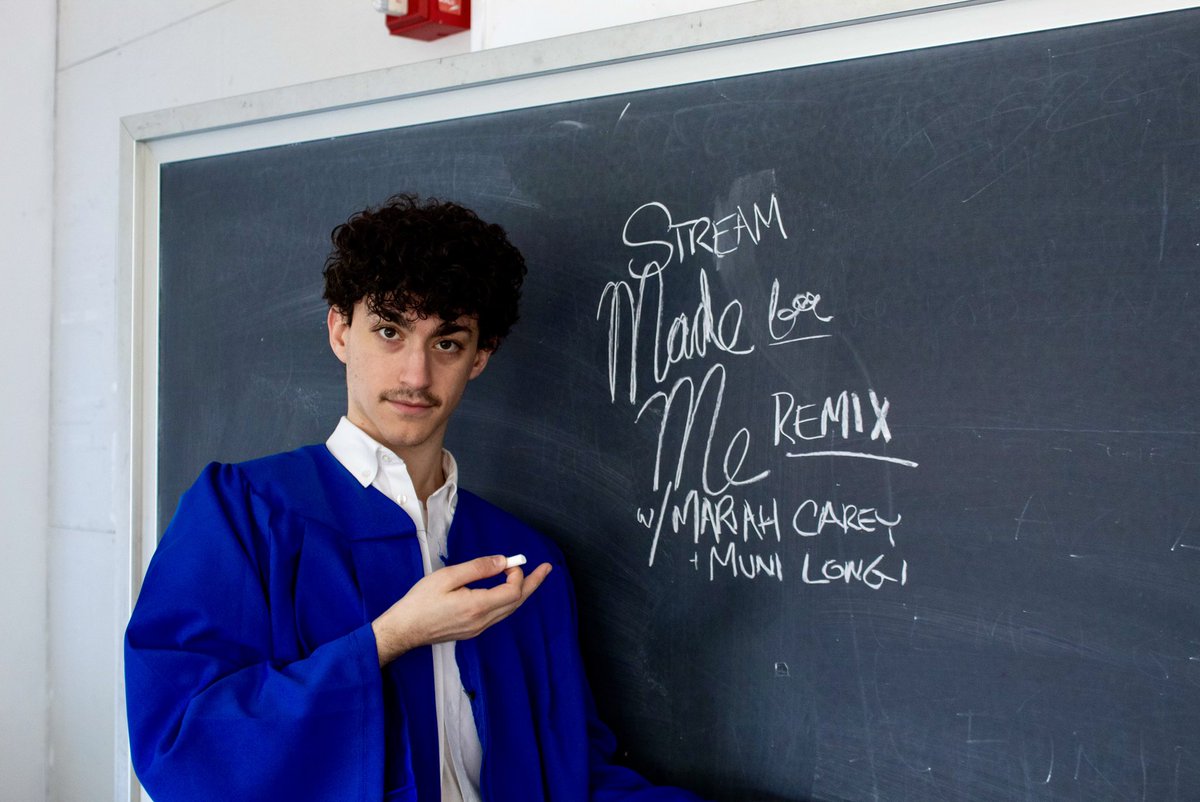 STREAM
Made for
Me REMIX
w/ MARIAH CAREY
+ MUNI LONG!